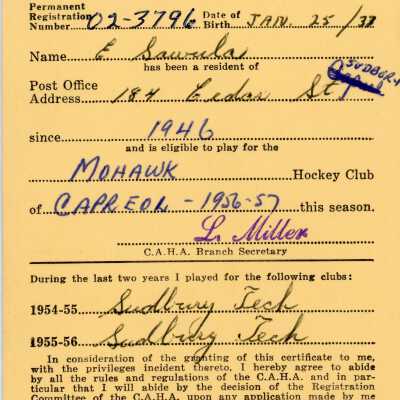 Permanent
Registration Date of
Number 02-3796 Birth JAN. 25/37
Name E Sawula
has been a resident of
Post Office SUDBURY
Address 184 Cedar St,
since 1946
and is eligible to play for the
MOHAWK Hockey Club
of CAPREOL - 1956-57 this season.
L. Miller
C.A.H.A. Branch Secretary
During the last two years I played for the following clubs:
1954-55 Sudbury Tech
1955-56 Sudbury Tech
In consideration of the granting of this certificate to me,
with the privileges incident thereto, I hereby agree to abide
by all the rules and regulations of the C.A.H.A. and in par-
ticular that I will abide by the decision of the Registration
Committee of the C.A.H.A. upon any application made by me